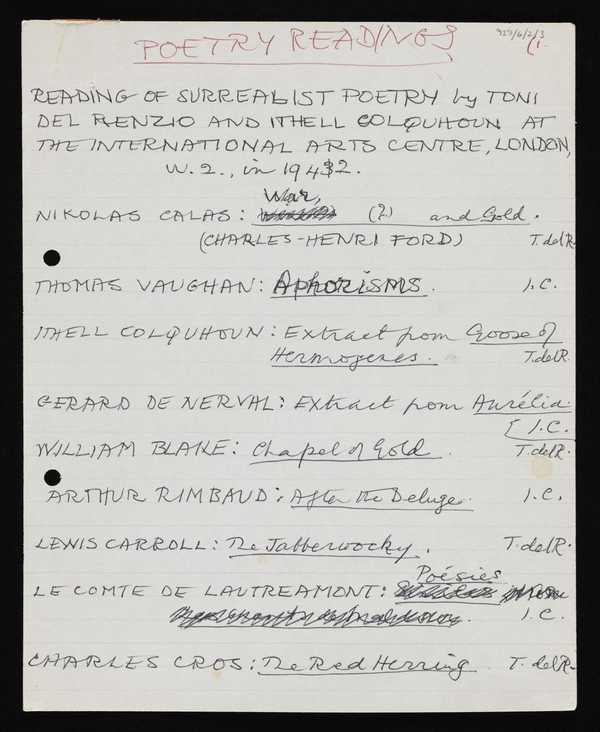 POETRY READINGS
929/6/2/3
(1.
READING OF SURREALIST POETRY by TONI
DEL RENZIO AND ITHELL COLQUHOUN AT
THE INTERNATIONAL ARTS CENTRE, LONDON,
W.2., in 1942.
War,
NIKOLAS CALAS: (?) and Gold.
(CHARLES-HENRI FORD) T. del R.
THOMAS VAUGHAN: Aphorisms. I.C.
ITHELL COLQUHOUN: Extract from Goose of
Hermogenes. T. del R.
GERARD DE NERVAL: Extract from Aurélia.
[ I.C.
WILLIAM BLAKE: Chapel of Gold. T. del R.
ARTHUR RIMBAUD: After the Deluge. I.C.
LEWIS CARROLL: The Jabberwocky. T. del R.
Poésies
LE COMTE DE LAUTREAMONT:
I.C.
CHARLES CROS: The Red Herring T. del R.